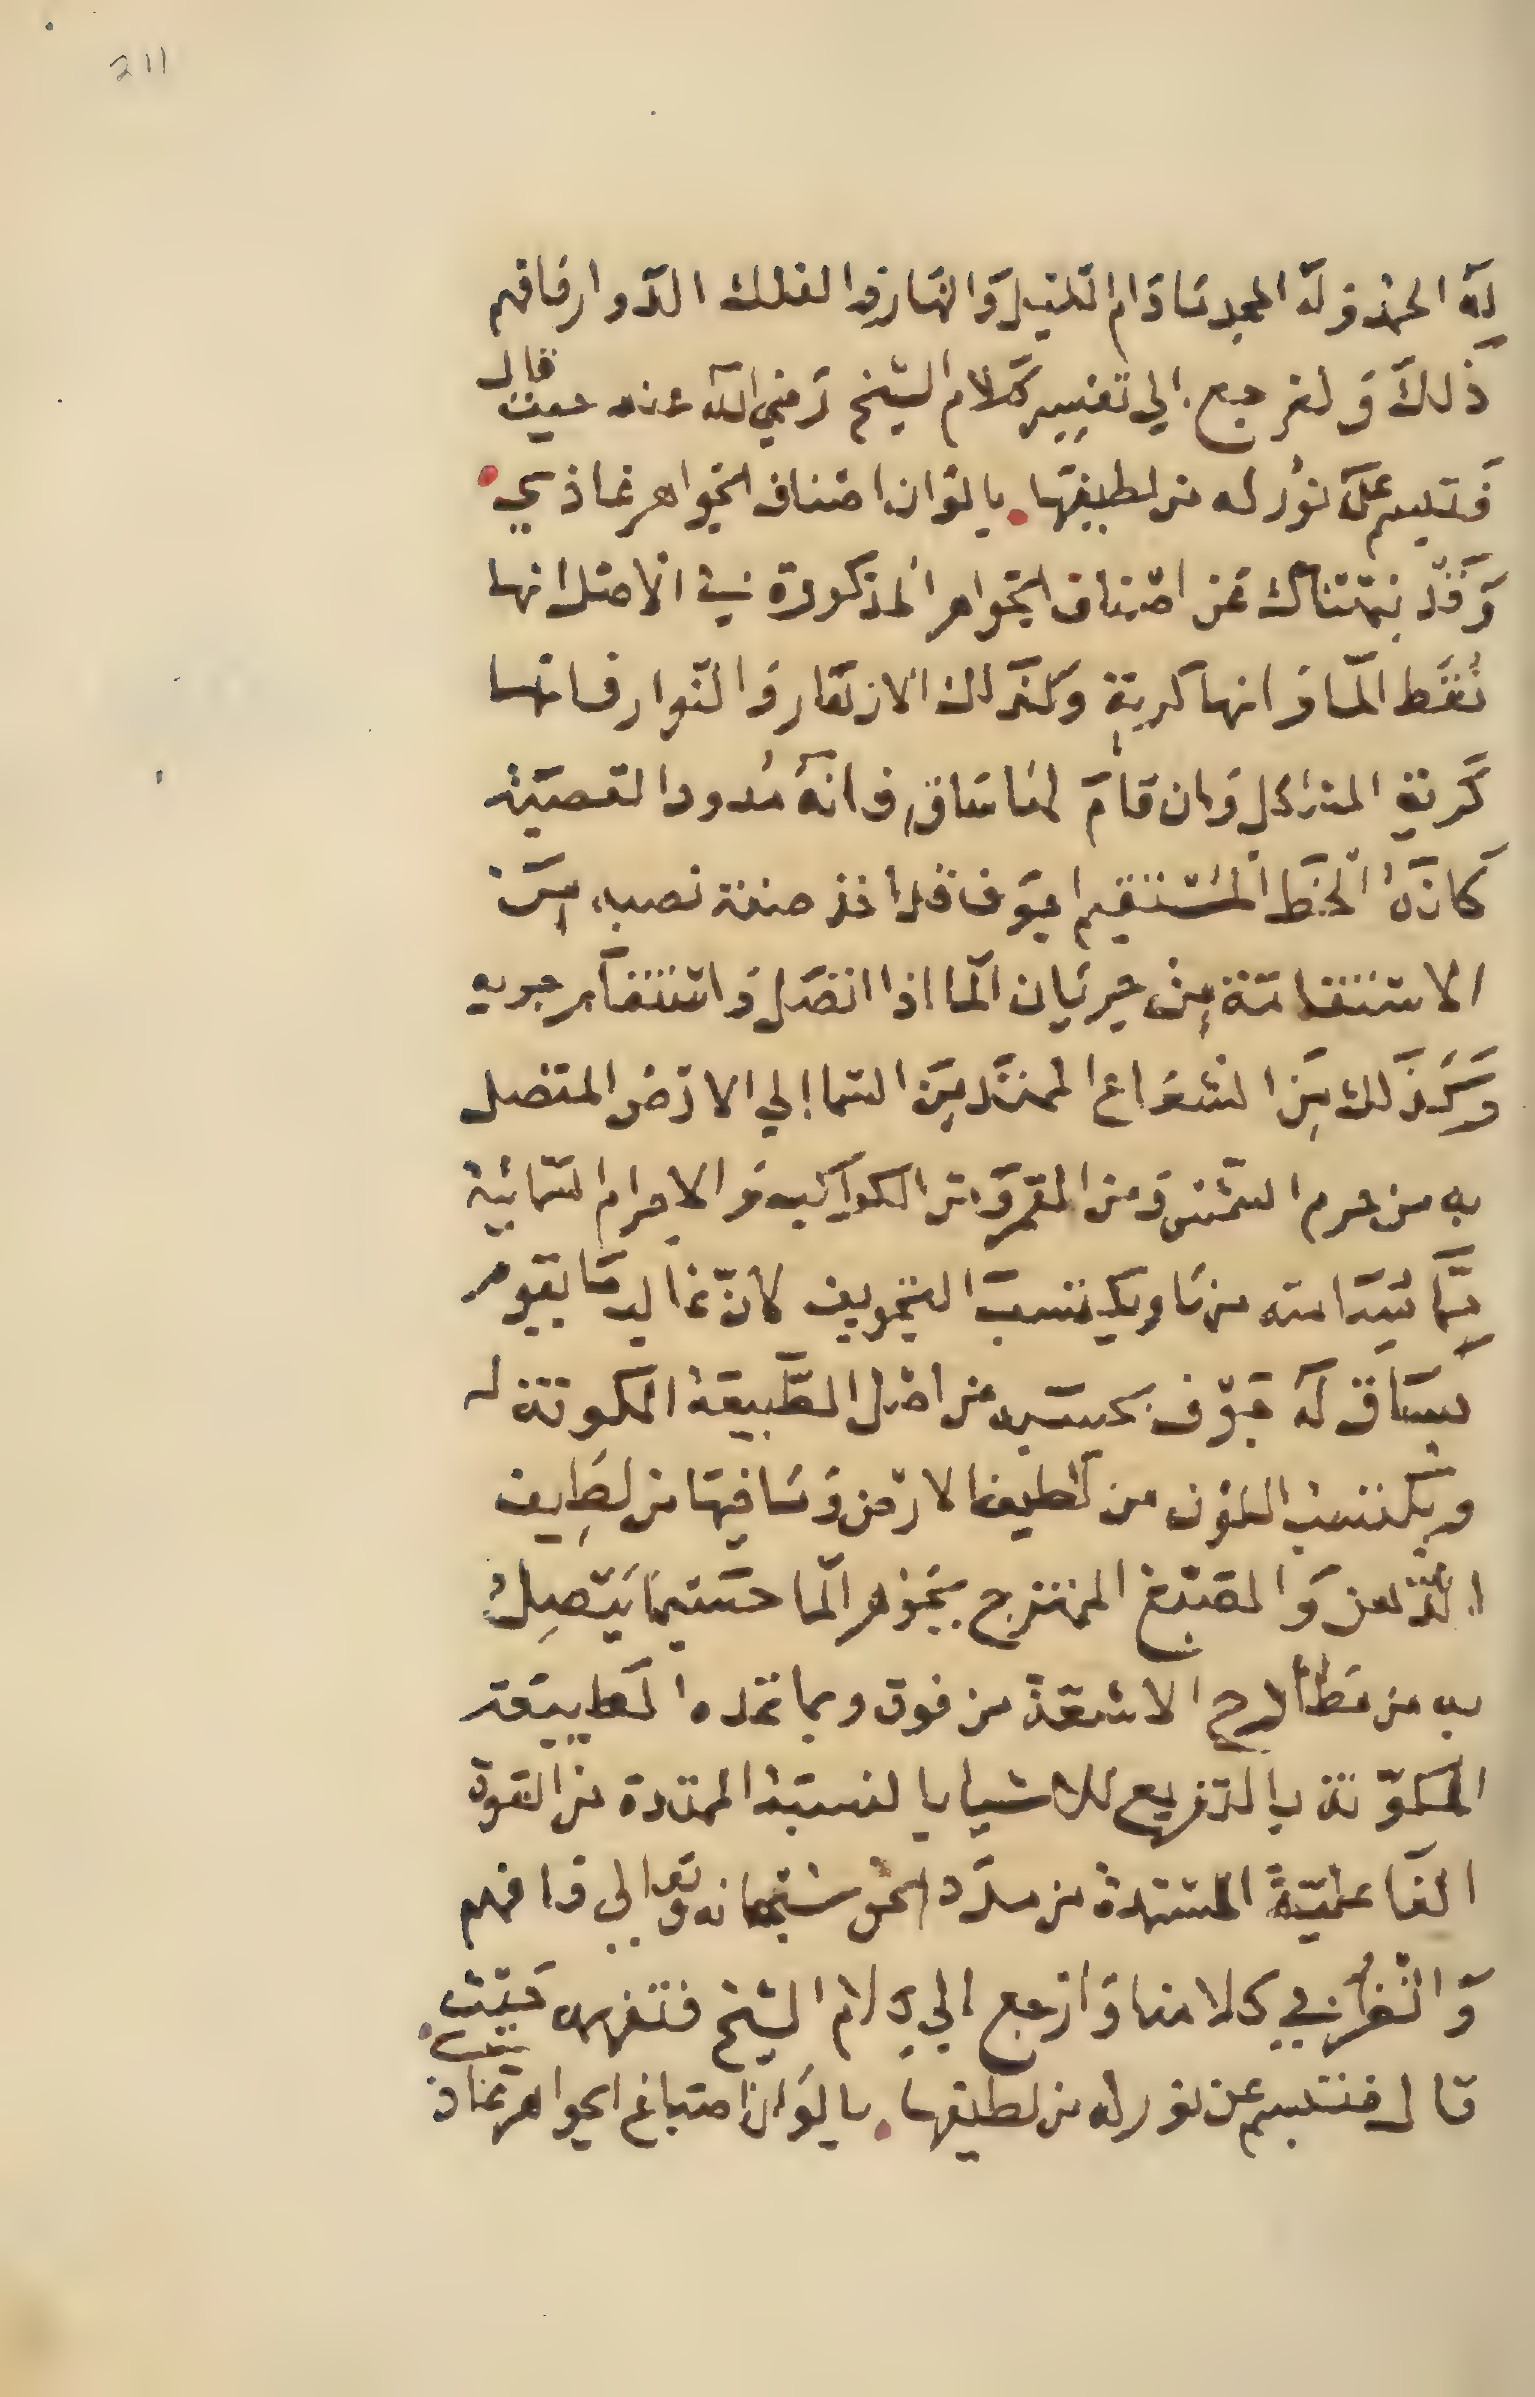 211
لله الحمد وله المجد ما دام الليل والنهار والفلك الدوار فافهم
ذلك ولنرجع الي تفسير كلام الشيخ رضي الله عنه حيث قال
فتبسم عن نور له من لطيفها بالوان اصناف الجواهر غاذي
وقد نبهناك عن اصناف الجواهر المذكورة في الاصل انها
نقط الما وانها كرية وكذلك الازهار والنوار فانها
كرية الشكل وان قام لها ساق فانه ممدود القصبة
كانه الخط المستقيم اجوف قد اخذ صفة نصبه من
الاستقامة من جريان الما اذا انصل واستقام جريه
وكذلك من الشعاع الممتد من السما الي الارض المتصل
به من جرم الشمس ومن القمر ومن الكواكب والاجرام السمائية
مما تسامته منها ويكتسب التجويف لان غالب ما يقوم
بساق له جوف بحسبه من اصل الطبيعة المكونة له
ويكتسب اللون من لطيف الارض وما فيها من لطيف
الدهن والصبغ الممتزج بجوهر الما حسبما يتصل
به من مطارح الاشعة من فوق وبما تمده الطبيعة
المكونة بالتفريع للاشيا بالنسبة الممتدة من القوة
الفاعلية المستمدة من مدد الحق سبحانه وتعالى فافهم
وانظر في كلامنا وارجع الي كلام الشيخ فتفهم حيث
قال فتبسم عن نور له من لطيفها بالوان اصباغ الجواهر غاذي